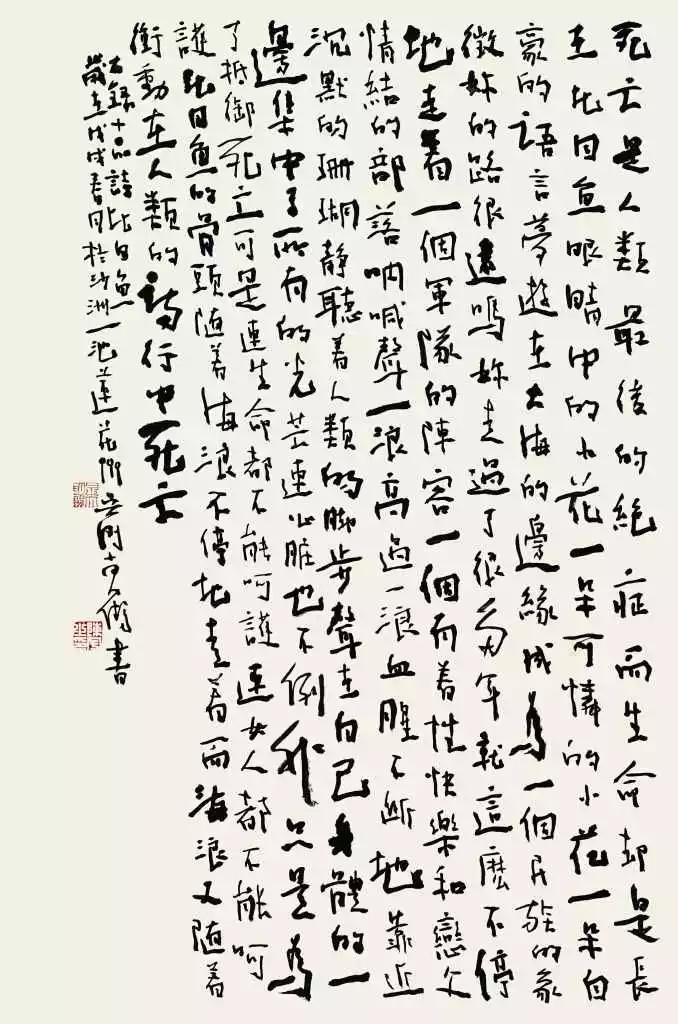 死亡是人類最後的絶症而生命却是長
在比目魚眼睛中的小花一朵可憐的小花一朵自
豪的語言夢遊在大海的邊緣成為一個民族的象
徵妳的路很遠嗎妳走過了很多年就這麼不停
地走着一個軍隊的陣容一個有着性快樂和戀父
情結的部落呐喊聲一浪高過一浪血腥不斷地靠近
沉默的珊瑚靜聽着人類的脚步聲在自己身體的一
邊集中了所有的光芒連心脏也不例外只是為
了抵御死亡可是連生命都不能呵護連女人都不能呵
護比目魚的骨頭随着海浪不停地走着而海浪又随着
衝動在人類的詩行中死亡
古録十品詩比目魚
歲在戊戌春月於沙洲一池蓮花衝吳門古人衛書